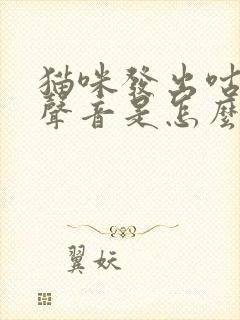 猫咪發出咕
聲音是怎麼
翼妖